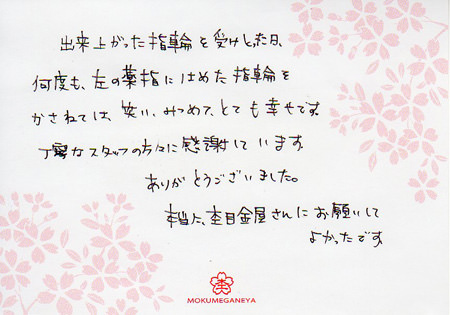 出来上がった指輪を受けとった日、
何度も、左の薬指にはめた指輪を
かさねては、笑い、みつめて、とても幸せです。
丁寧なスタッフの方々に感謝しています
ありがとうございました。
本当に、杢目金屋さんにお願いして
よかったです
杢
MOKUMEGANEYA